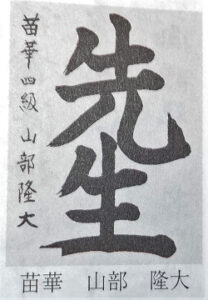 先生
苗華四級 山部隆大
苗華 山部 隆大